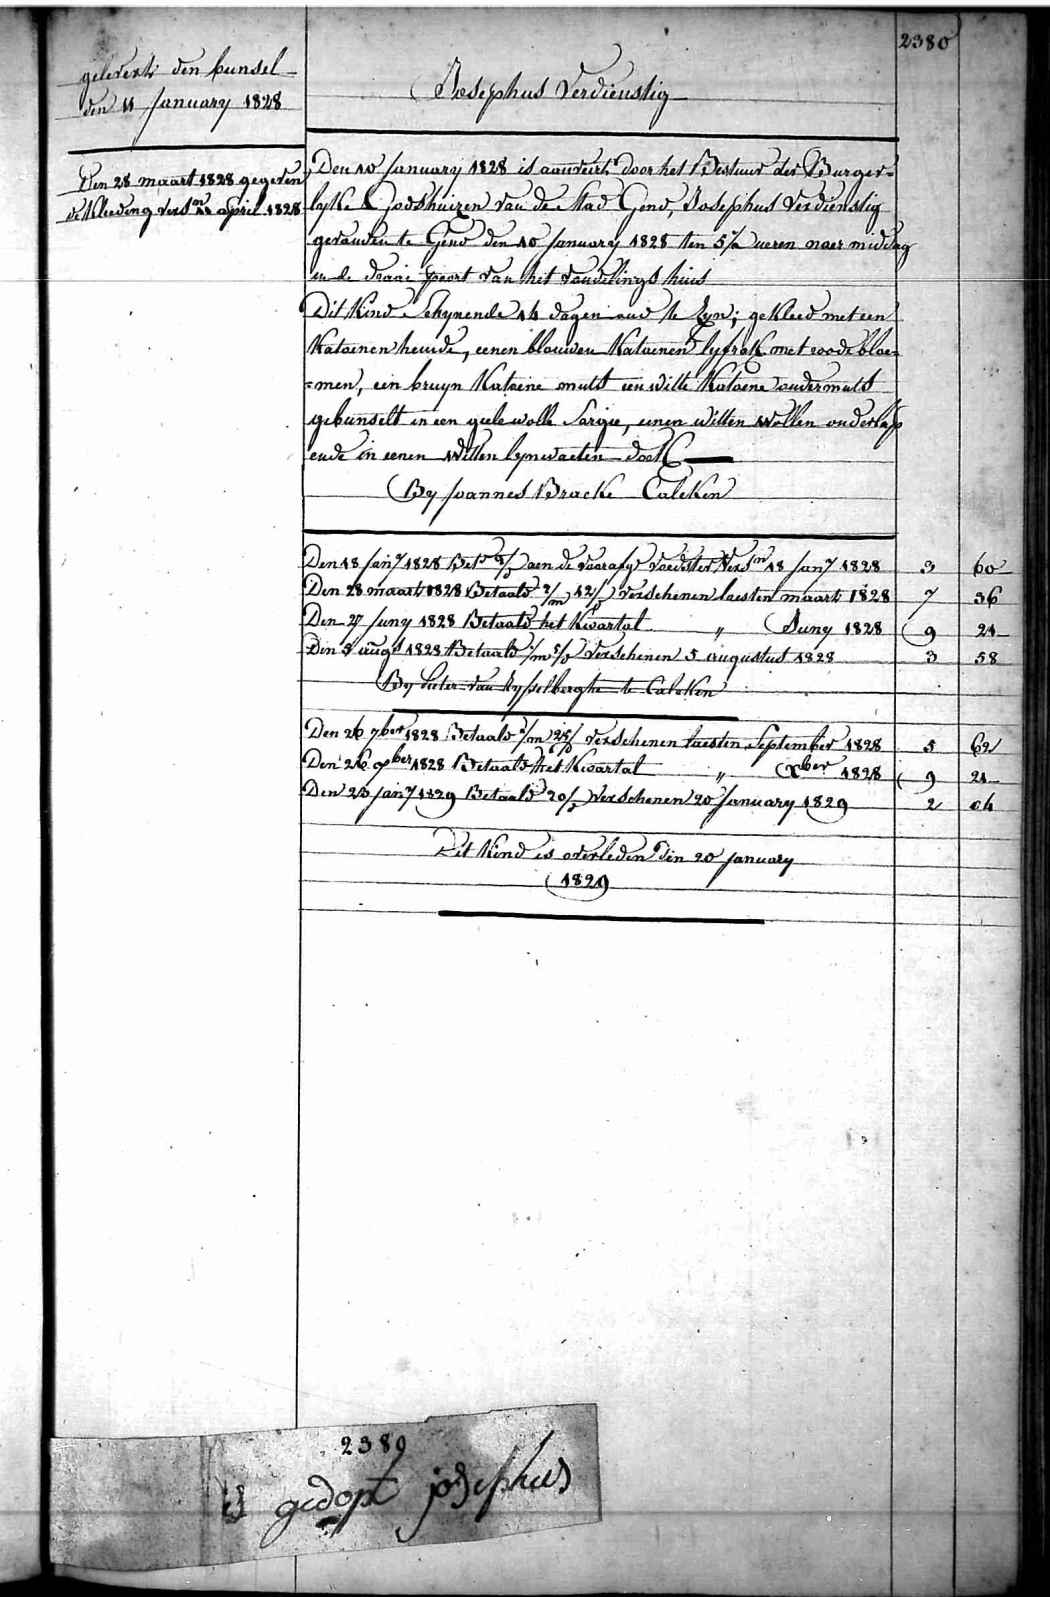 2380
gelevert den bunsel
den 11 January 1828
Josephus Verdienstig
Den 28 maart 1828 gegeven
de kleeding versn april 1828
Den 10 January 1828 is aanveirt door het Bestuur der Burger-
lyke Godshuizen van de Stad Gend, Josephus Verdienstig
gevonden te Gend den 10 January 1828 ten 5 1/2 ueren naer middag
in de draai poort van het vondelings huis
Dit Kind Schynende 14 dagen oud te Zyn; gekleed met een
Katoenen hemde, eenen blauwen Katoenen lyfrok met roode bloe-
=men, een bruyn Katoene muts een witte Katoene ondermuts
gebunselt in een geele wolle Sargie, eenen witten wollen onderlap
ende in eenen witten lynwaeten doek
By Joannes Bracke Calcken
Den 18 Jany 1828 Bet aen de voorafge voedster Versn 18 Jany 1828 3 60
Den 28 maart 1828 Betaald 2/m 12/d verschenen laesten maart 1828 7 36
Den 27 Juny 1828 Betaald het Kwartal " Juny 1828 9 21
Den 8 augt 1828 Betaald 1/m 5/d verschenen 5 augustus 1828 3 58
By Pieter van Rysselberghe te Calcken
Den 26 7ber 1828 Betaald 1/m 25/d verschenen laesten September 1828 5 62
Den 26 9ber 1828 Betaald het Kwartal " Xber 1828 9 21
Den 23 Jany 1829 Betaald 20/d Verschenen 20 January 1829 2 04
Dit Kind is overleden den 20 January
1829
2389
is gedopt josephus